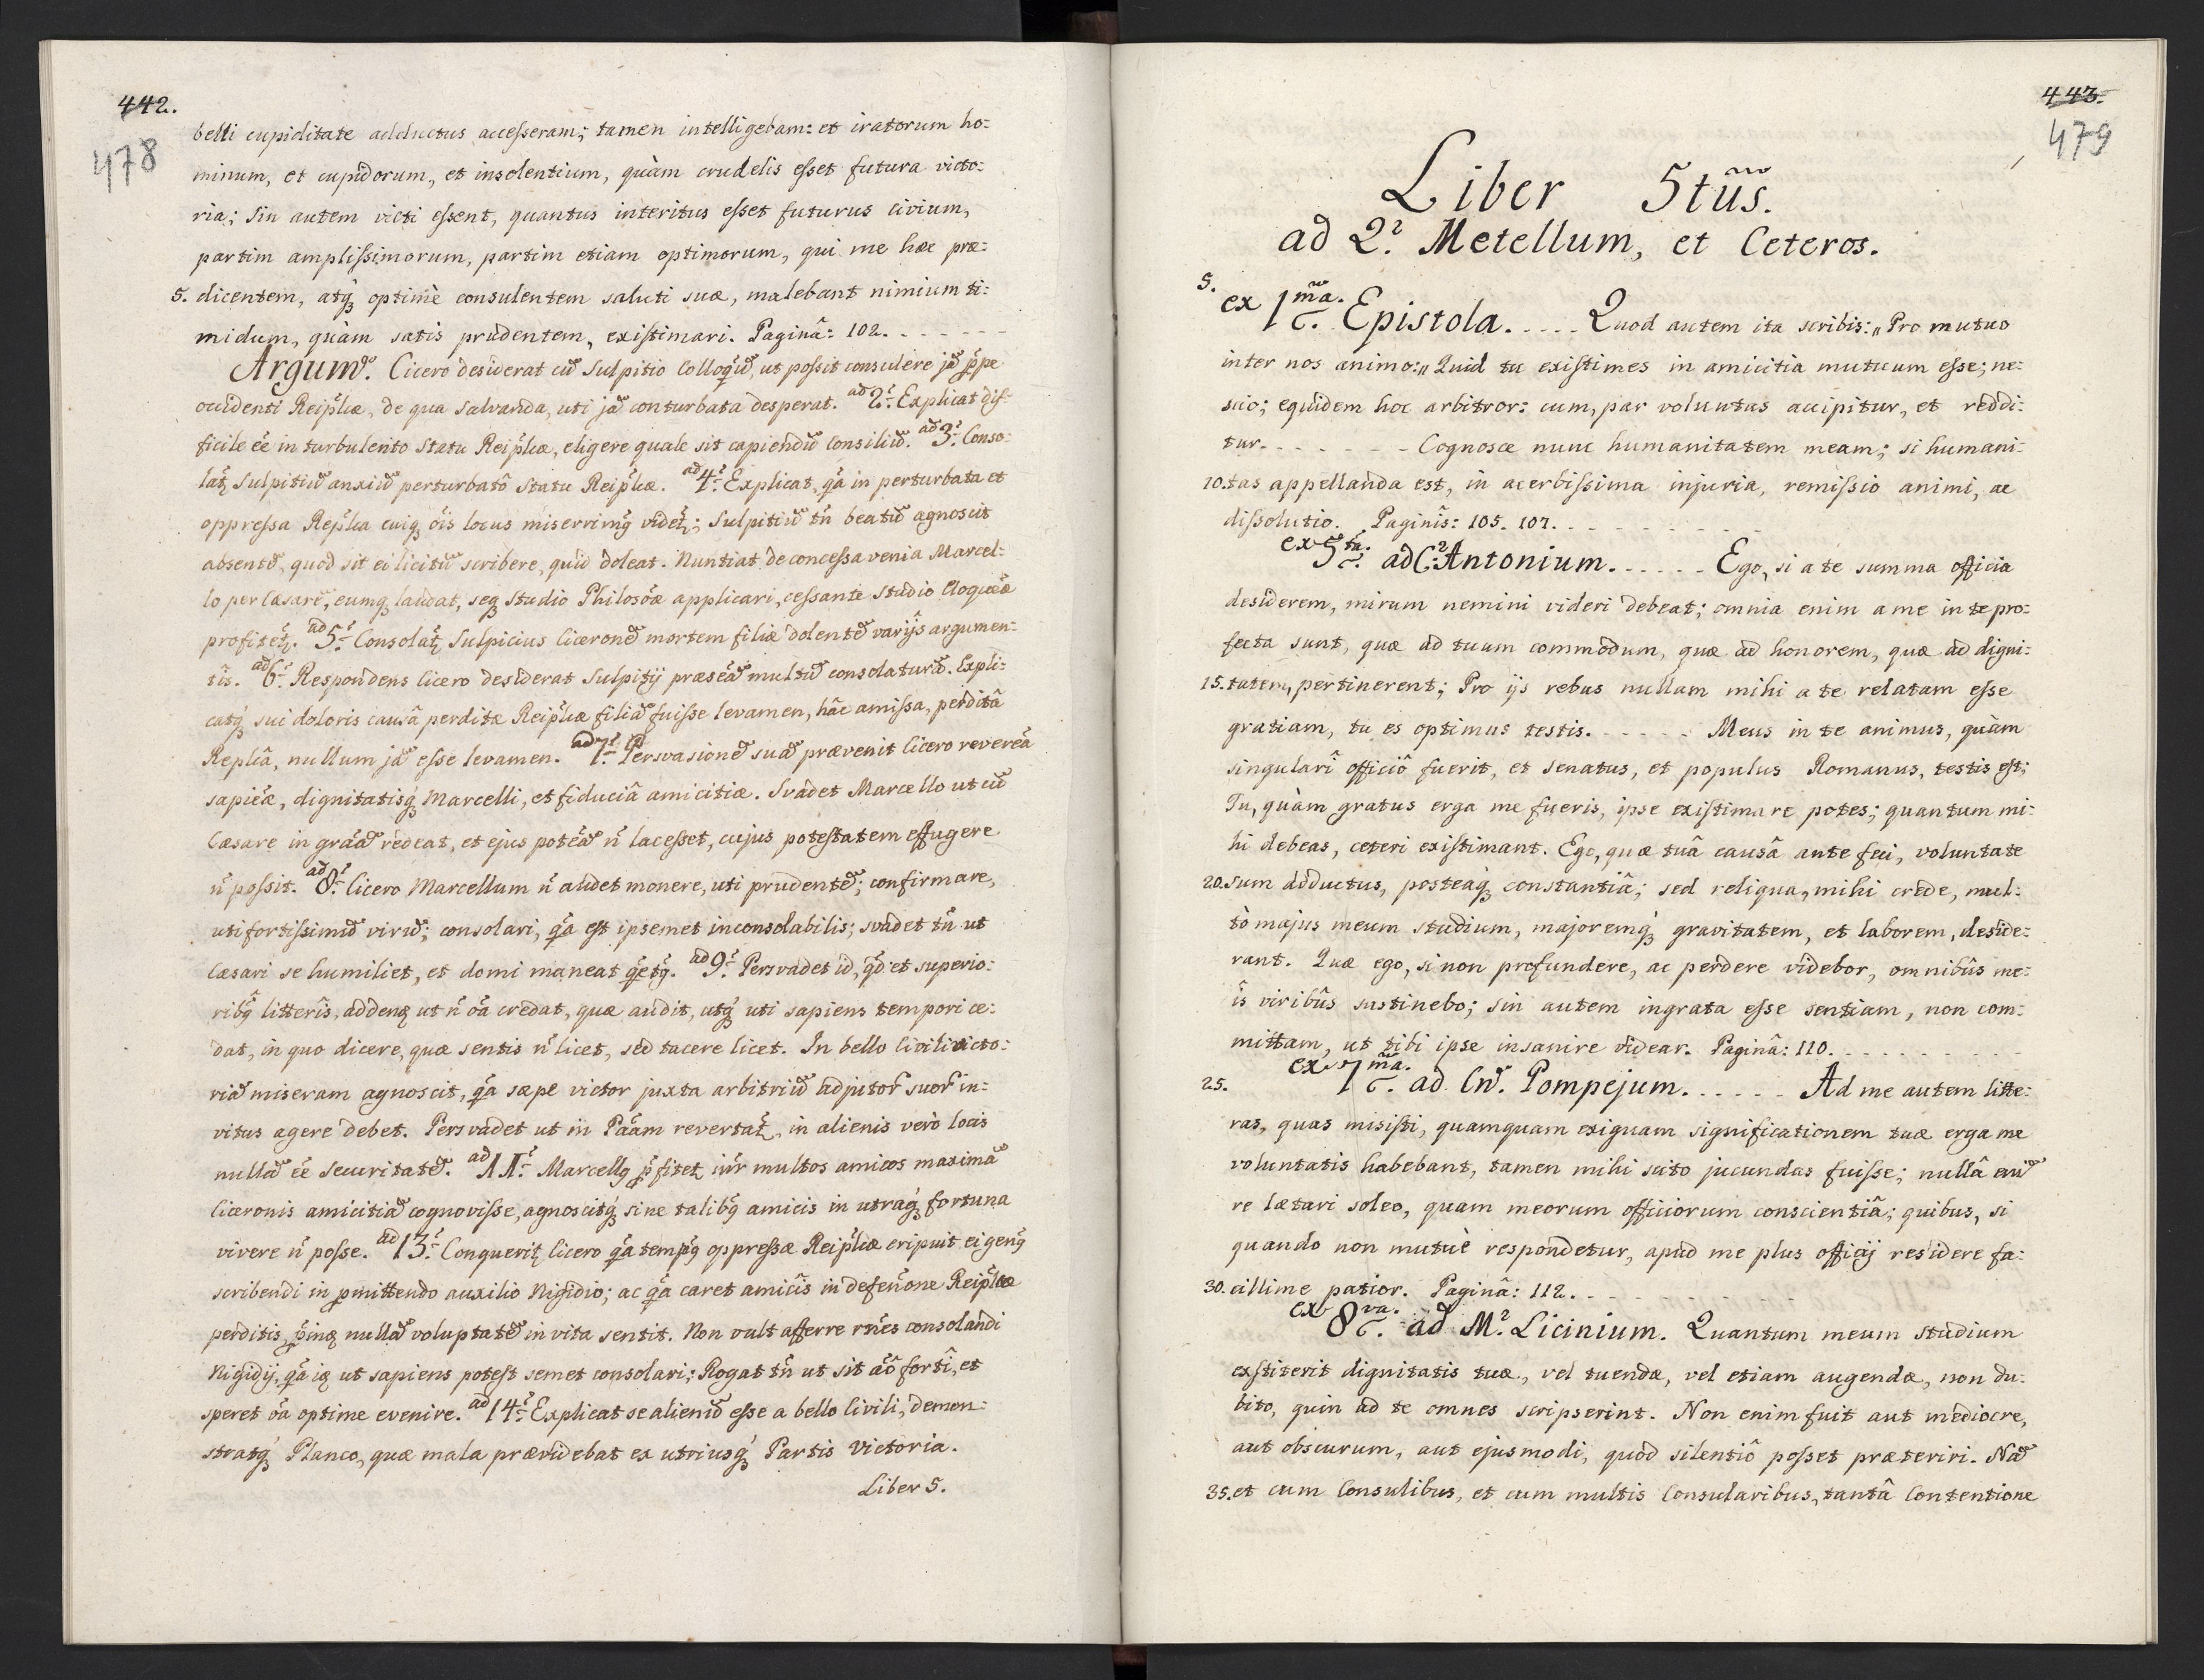 442.
478
belli cupiditate adductus accesseram; tamen intelligebam: et iratorum ho:
minum, et cupidorum, et insolentium, quàm crudelis esset futura victo:
ria; Sin autem victi essent, quantus interitus esset futurus civium,
partim amplissimorum, partim etiam optimorum, qui me hæc præ:
5. dicentem, atq́ꝫ optimè consulentem saluti suæ, malebant nimium ti:
midum, quàm satis prudentem, existimari. Paginâ: 102. - - - - - -
Argum̃. Cicero desiderat cũ Sulpitio Colloqũ, ut possit consulere jã ꝑpe
occidenti Reip̃licæ, de qua salvanda, uti jã conturbata desperat. ad 2.̃ Explicat dif:
ficile ẽe in turbulento Statu Reip̃licæ, eligere quale sit capiendũ Consiliũ. ad 3.̃ Conso:
lat̃ Sulpitiũ anxiũ perturbatô Statu Reip̃licæ. ad 4.̃ Explicat, q̃a in perturbata et
oppressa Rep̃lica cuiꝗ õis locus miserrimꝗ videt̃; Sulpitiũ tñ beatũ agnoscit
absentẽ, quod sit ei licitũ scribere, quid doleat. Nuntiat de concessa venia Marcel:
lo per Cæsarẽ, eumꝗ laudat, seꝗ studio Philosõæ applicari, cessante studio Eloquẽæ
profitet̃. ad 5.̃ Consolat̃ Sulpicius Ciceronẽ mortem filiæ dolentẽ varijs argumen:
tis. ad 6.̃ Respondens Cicero desiderat Sulpitij præsẽã multũ consolaturã. Expli:
catꝗ́ sui doloris causâ perditæ Reip̃licæ filiã fuisse levamen, hâc amissa, perditâ
Rep̃licâ, nullum jã esse levamen. ad 7.̃ Persvasionẽ suã prævenit Cicero reverẽã
sapiẽæ, dignitatisꝗ́ Marcelli, et fiduciâ amicitiæ. Svadet Marcello ut cũ
Cæsare in grãã redeat, et ejus potẽã ñ lacesset, cujus potestatem effugere
ñ possit. ad 8.̃ Cicero Marcellum ñ audet monere, uti prudentẽ; confirmare,
uti fortissimũ virũ; consolari, q̃a est ipsemet inconsolabilis; svadet tñ ut
Cæsari se humiliet, et domi maneat q̃etꝗ. ad 9.̃ Persvadet id, q̃d et superio:
ribꝗ litterîs, addenꝗ ut ñ õã credat, quæ audit, utꝗ́ uti sapiens tempori ce:
dat, in quo dicere, quæ sentis ñ licet, sed tacere licet. In bello Civili victo:
riã miseram agnoscit, q̃a sæpe victor juxta arbitriũ adjutor̃ suor̃ in:
vitus agere debet. Persvadet ut in Pãam revertat̃, in alienis verò locis
nullã ẽe securitatẽ. ad 11.̃ Marcellꝗ ꝓfitet̃ iñr multos amicos maximã
Ciceronis amicitiã cognovisse, agnoscitꝗ́ sine talibꝗ amicis in utraꝗ́ fortuna
vivere ñ posse. ad 13.̃ Conquerit̃ Cicero q̃a tempꝗ oppressæ Reip̃licæ eripuit ei genꝗ
scribendi in ꝓmittendo auxilio Nigidio; ac q̃a caret amicîs in defeñone Reip̃licæ
perditis, ꝓinꝗ nullã voluptatẽ in vita sentit. Non vult afferre rñes consolandi
Nigidij, q̃a iꝗ ut sapiens potest semet consolari; Rogat tñ ut sit ãõ fortî, et
speret õa optime evenire. ad 14.̃ Explicat se alienũ esse a bello Civili, demon:
stratꝗ́ Planco, quæ mala prævidebat ex utriusꝗ́ Partis Victoria.
Liber 5.
443.
479
Liber 5tũs.
ad Q.̃ Metellum, et Ceteros.
5. ex 1.mã Epistola. - - - - Quod autem ita scribis: „Pro mutuo
inter nos animo:„ Quid tu existimes in amicitia mutuum esse; ne:
scio; equidem hoc arbitror: cum, par voluntas accipitur, et reddi:
tur. - - - - - - - Cognosce nunc humanitatem meam; si humani:
10. tas appellanda est, in acerbissima injuria, remissio animi, ac
dissolutio. Paginîs: 105. 107. - - - - - - - - -
ex 5.tã ad C.̃ Antonium. - - - - - Ego, si a te summa officia
desiderem, mirum nemini videri debeat; omnia enim a me in te pro:
fecta sunt, quæ ad tuum commodum, quæ ad honorem, quæ ad digni:
15. tatem, pertinerent; Pro ijs rebus nullam mihi a te relatam esse
gratiam, tu es optimus testis. - - - - - Meus in te animus, quàm
singularî officiô fuerit, et Senatus, et populus Romanus, testis est;
Tu, quàm gratus erga me fueris, ipse existimare potes; quantum mi:
hi debeas, ceteri existimant. Ego, quæ tuâ causâ ante feci, voluntate
20. sum adductus, posteaꝗ́ constantiâ; sed reliqua, mihi crede, mul:
tò majus meum studium, majoremꝗ́ gravitatem, et laborem, deside:
rant. Quæ ego, si non profundere, ac perdere videbor, omnibûs me:
îs viribûs sustinebo; sin autem ingrata esse sentiam, non com:
mittam, ut tibi ipse insanire videar. Paginâ: 110. - - - - - - - -
25. ex 7.mã ad Cñ. Pompejum. - - - - - Ad me autem litte:
ras, quas misisti, quamquam exiguam significationem tuæ erga me
voluntatis habebant, tamen mihi scito jucundas fuisse; nullâ enĩ
re lætari soleo, quam meorum officiorum conscientiâ; quibus, si
quando non mutuè respondetur, apud me plus officij residere fa:
30. cillime patior. Paginâ: 112. - - - - - - - - -
ex 8.va. ad M.̃ Licinium. Quantum meum studium
exstiterit dignitatis tuæ, vel tuendæ, vel etiam augendæ, non du:
bito, quin ad te omnes scripserint. Non enim fuit aut mediocre,
aut obscurum, aut ejusmodi, quod silentiô posset præteriri. Nã
35. et cum Consulibus, et cum multis Consularibus, tantâ Contentione